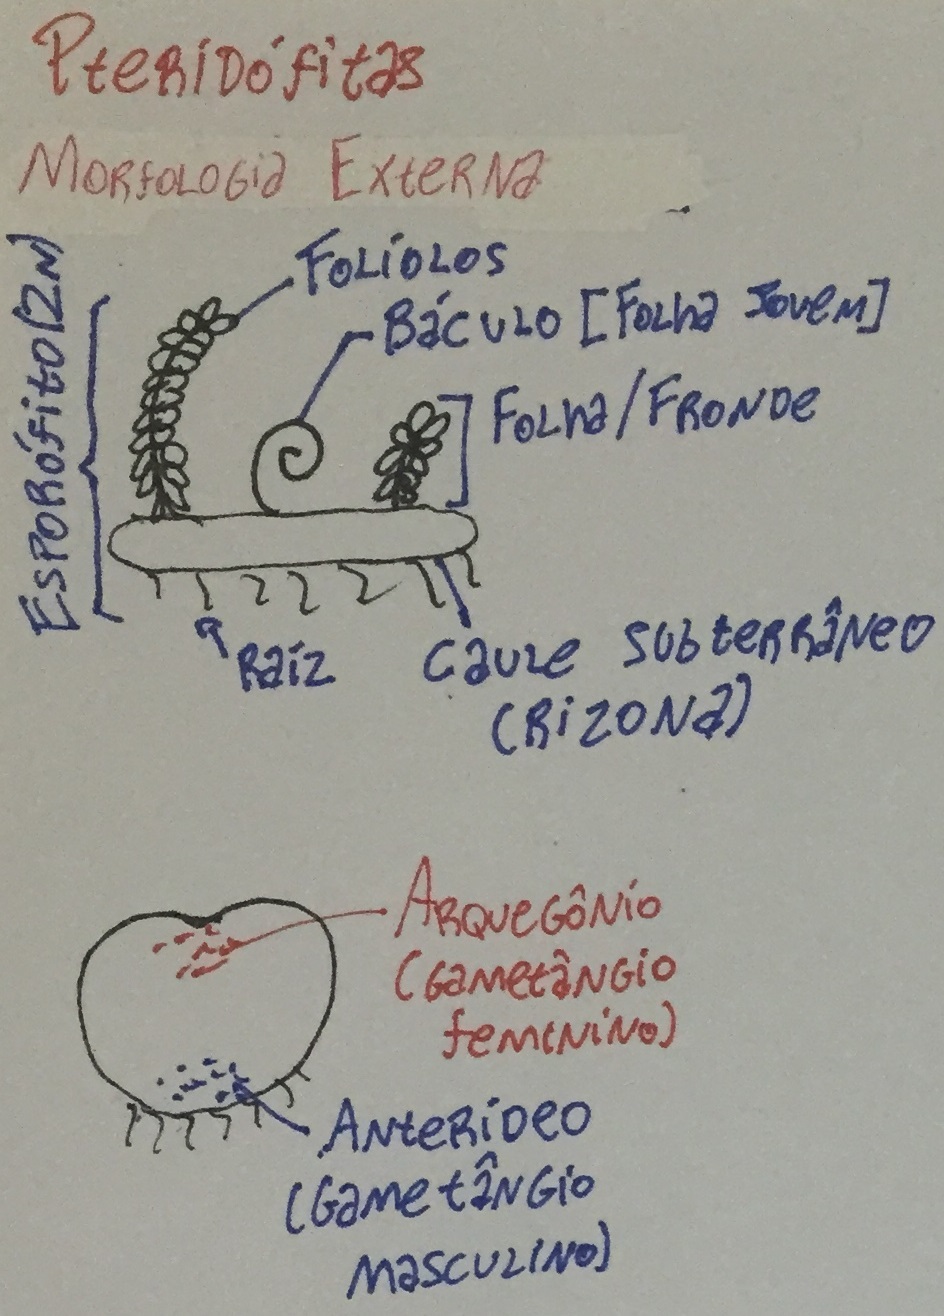 Pteridófitas
Morfologia Externa
Esporófito(2N)
Folíolos
Báculo [Folha Jovem]
Folha/Fronde
Raíz
Caule subterrâneo
(Rizona)
Arquegônio
(Gametângio
feminino)
Anterídeo
(Gametângio
masculino)